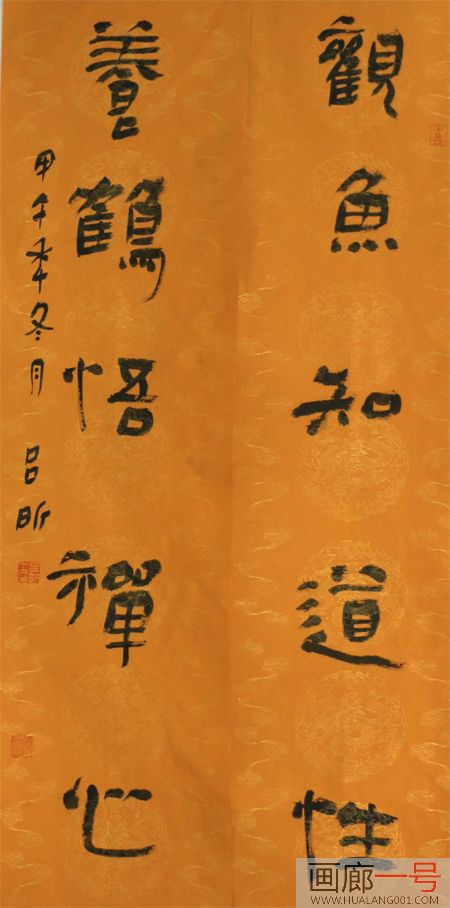 觀魚知道性
養鶴悟禪心
甲午年冬月
呂昕
画廊一号
WWW.HUALANG001.COM